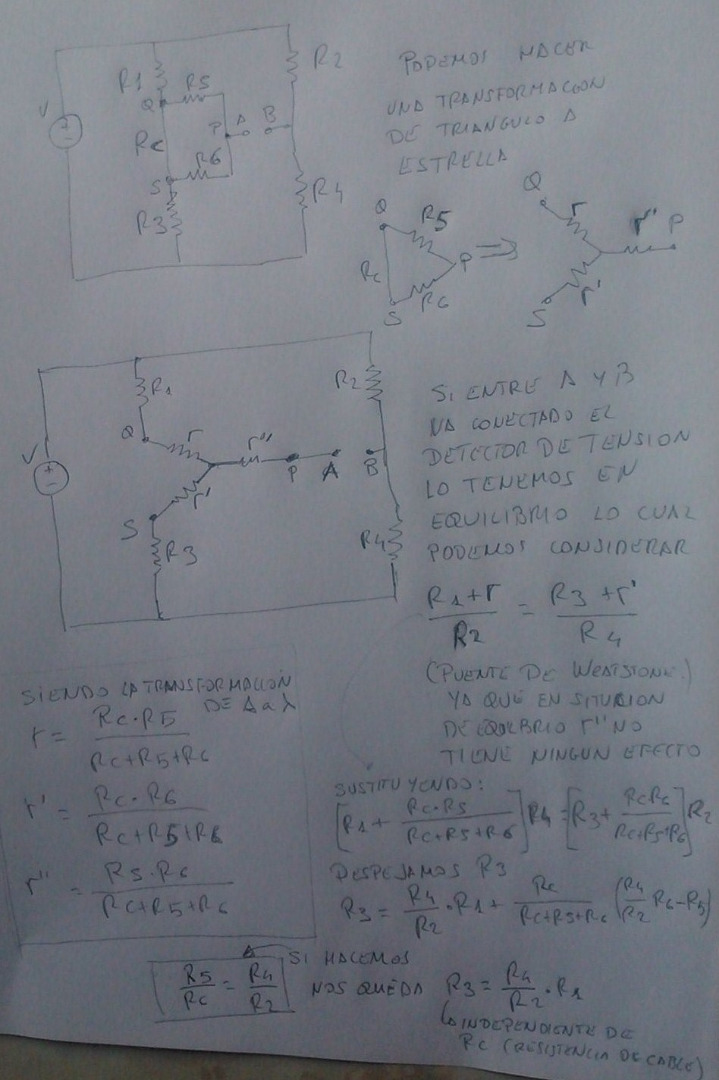 R1
R5
R2
Q
V
P
A
B
Rc
R6
S
R3
R4
PODEMOS HACER
UNA TRANSFORMACION
DE TRIANGULO A
ESTRELLA
Q
R5
Rc
P
R6
S
Q
r
r''
P
r'
S
R1
R2
Q
r
r''
V
P
A
B
r'
S
R3
R4
SI ENTRE A Y B
VA CONECTADO EL
DETECTOR DE TENSION
LO TENEMOS EN
EQUILIBRIO LO CUAL
PODEMOS CONSIDERAR
R1+r / R2 = R3+r' / R4
(PUENTE DE WEATSTONE)
YA QUE EN SITUCION
DE EQUILBRIO r'' NO
TIENE NINGUN EFECTO
SIENDO LA TRANSFORMACION
DE Δ a λ
r = Rc·R5 / Rc+R5+R6
r' = Rc·R6 / Rc+R5+R6
r'' = R5·R6 / Rc+R5+R6
SUSTITUYENDO:
[R1 + Rc·R5 / Rc+R5+R6] R4 = [R3 + RcR6 / Rc+R5+R6] R2
DESPEJAMOS R3
R3 = R4/R2 · R1 + Rc / Rc+R5+R6 (R4/R2 R6-R5)
SI HACEMOS
R5/R6 = R4/R2
NOS QUEDA R3 = R4/R2 · R1
INDEPENDIENTE DE
Rc (RESISTENCIA DE CABLE)